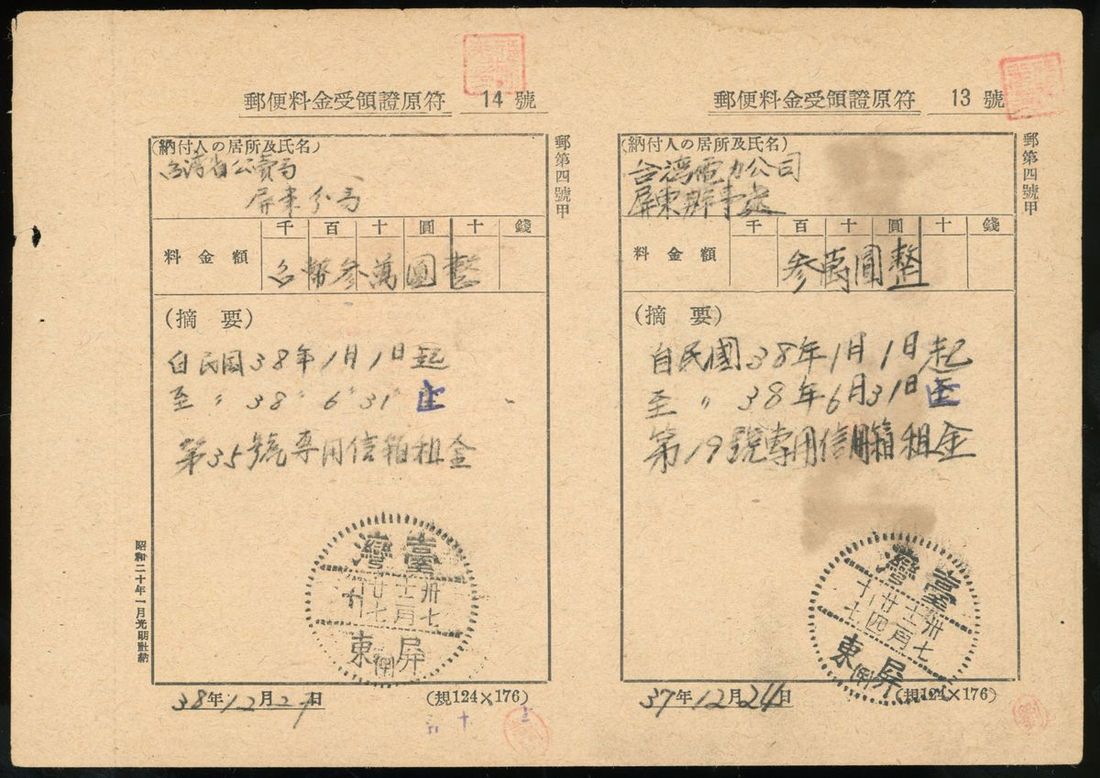 郵便料金受領證原符 14 號
(納付人の居所及氏名)
台湾省公賣局
屏東分局
千 百 十 圓 十 錢
料金額
台幣參萬圓整
(摘要)
自民國38年1月1日起
至〃38〃6〃31〃止
第35號専用信箱租金
臺灣
卅七
十二月
廿七
屏東
38年12月27日
(規124×176)
昭和二十年一月光明社納
郵第四號甲
郵便料金受領證原符 13 號
(納付人の居所及氏名)
台湾電力公司
屏東辦事處
千 百 十 圓 十 錢
料金額
參萬圓整
(摘要)
自民國38年1月1日起
至〃38年6月31日止
第19號専用信箱租金
臺灣
卅七
十二月
廿四
屏東
37年12月24日
(規124×176)
郵第四號甲